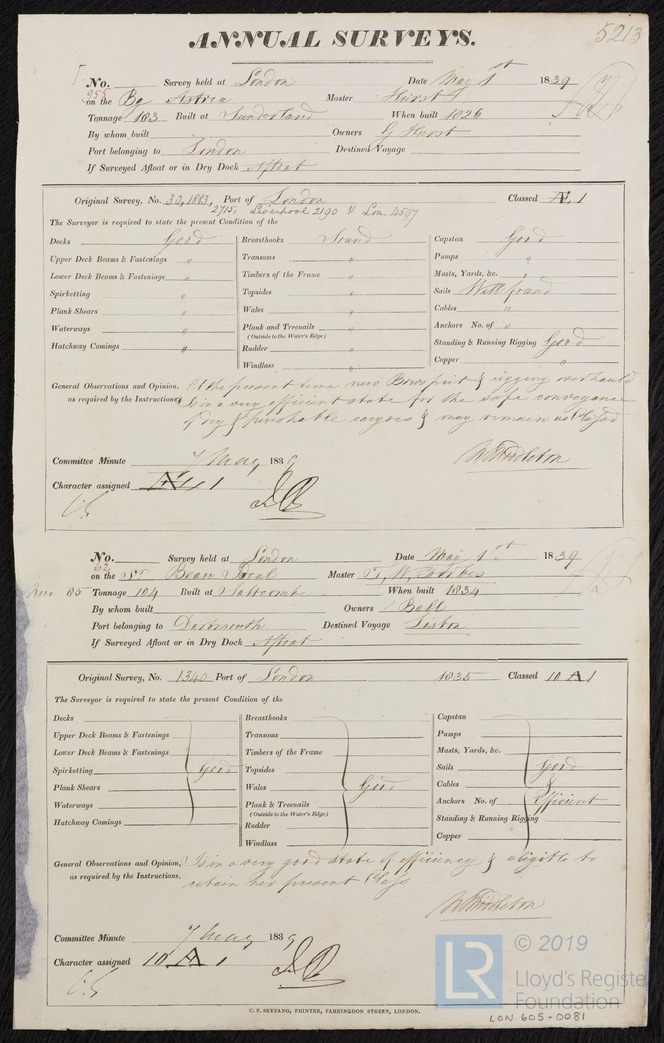 5213
ANNUAL SURVEYS.
No. Survey held at London Date May 1st 1839
255
on the Bg Astrea Master Hurst
Tonnage 183 Built at Sunderland When built 1826
By whom built Owners G Hurst
Port belonging to London Destined Voyage
If Surveyed Afloat or in Dry Dock Afloat
Original Survey, No. 30,1883, Port of London Classed Æ 1
2715, Liverpool 2190 & Lon. 4597
The Surveyor is required to state the present Condition of the
Decks Good Breasthooks Sound Capstan Good
Upper Deck Beams & Fastenings " Transoms " Pumps "
Lower Deck Beams & Fastenings " Timbers of the Frame " Masts, Yards, &c. "
Spirketting " Topsides " Sails Well found
Plank Shears " Wales " Cables "
Waterways " Plank and Treenails " Anchors No. of "
(Outside to the Water's Edge)
Hatchway Comings " Rudder " Standing & Running Rigging Good
Windlass " Copper "
General Observations and Opinion, At the present time new Bowsprit & rigging overhauld
as required by the Instructions Is in a very efficient state for the safe conveyance
of Dry & perishable cargoes & may remain as Classd
W Middleton
Committee Minute 7 May 1839
Character assigned Æ 1
No. Survey held at London Date May 1st 1839
62
on the Sr Beau Ideal Master T. W. Forbes
New 85 Tonnage 104 Built at Salcombe When built 1834
By whom built Owners Ball
Port belonging to Dartmouth Destined Voyage Lisbon
If Surveyed Afloat or in Dry Dock Afloat
Original Survey, No. 1340 Port of London 1835 Classed 10 A 1
The Surveyor is required to state the present Condition of the
Decks Breasthooks Capstan
Upper Deck Beams & Fastenings Transoms Pumps
Lower Deck Beams & Fastenings Timbers of the Frame Masts, Yards, &c.
Spirketting Good Topsides Sails Good
Plank Shears Wales Good Cables &
Waterways Plank & Treenails Anchors No. of Efficient
(Outside to the Water's Edge)
Hatchway Comings Rudder Standing & Running Rigging
Windlass Copper
General Observations and Opinion, Is in a very good state of efficiency & eligible to
as required by the Instructions. retain her present Class
W Middleton
Committee Minute 7 May 1839
Character assigned 10 A 1
C. F. SEYFANG, PRINTER, FARRINGDON STREET, LONDON.
LR © 2019
Lloyd's Register
Foundation
LON 605-0081